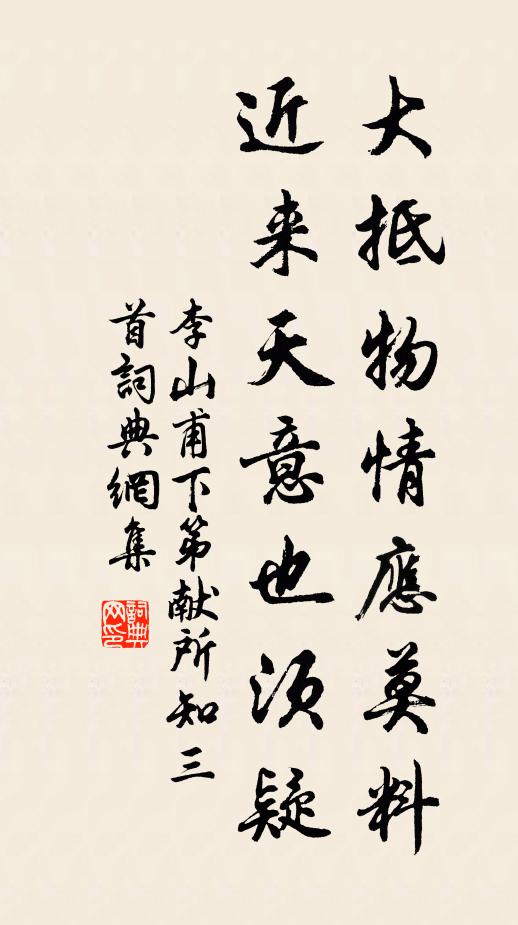 大抵物情應莫料
近来天意也須疑
李山甫下第献所知三
首詞典網集
詞典网印